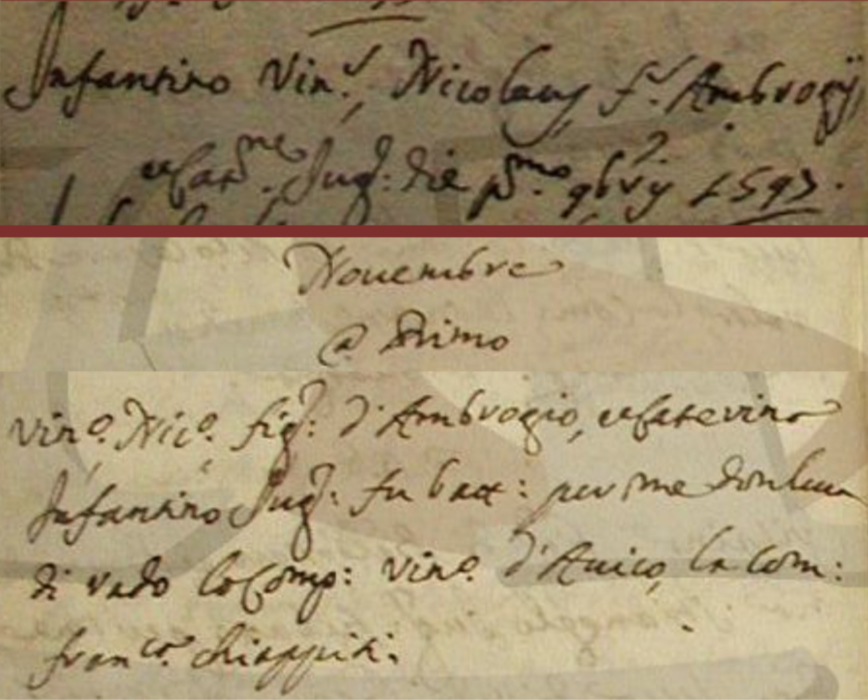 Infantino Vin.s Nicolaus f.s Ambrogij
et Cat.ne Jug: die p.mo 9b.rij 1593.
Nouembre
@ Primo
Vin.o Nic.o fig: d'Ambrogio, et Caterina
Infantino Jug: fu batt: per me Don luca
di vado lo Comp: Vin.o d'Auico, la Com:
fran.ca Chiappiti: